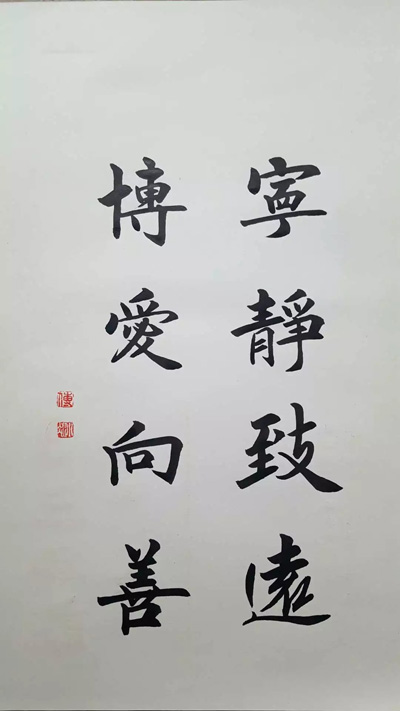 寧靜致遠
博愛向善